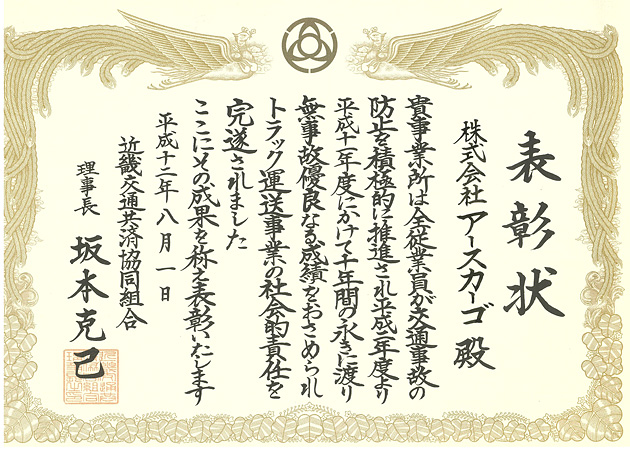 表彰状
株式会社 アースカーゴ 殿
貴事業所は全従業員が交通事故の
防止を積極的に推進され平成二年度より
平成十一年度にかけて十年間の永きに渡り
無事故優良なる成績をおさめられ
トラック運送事業の社会的責任を
完遂されました
ここにその成果を称え表彰いたします
平成十二年八月一日
近畿交通共済協同組合
理事長 坂本克己